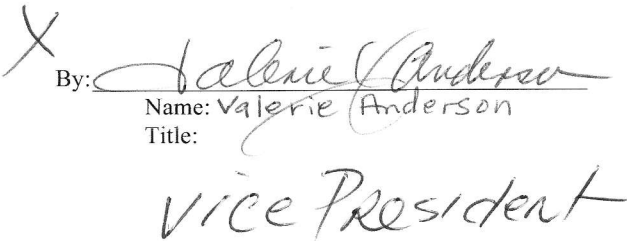 X
By: Valerie J Anderson
Name: Valerie Anderson
Title:
Vice President